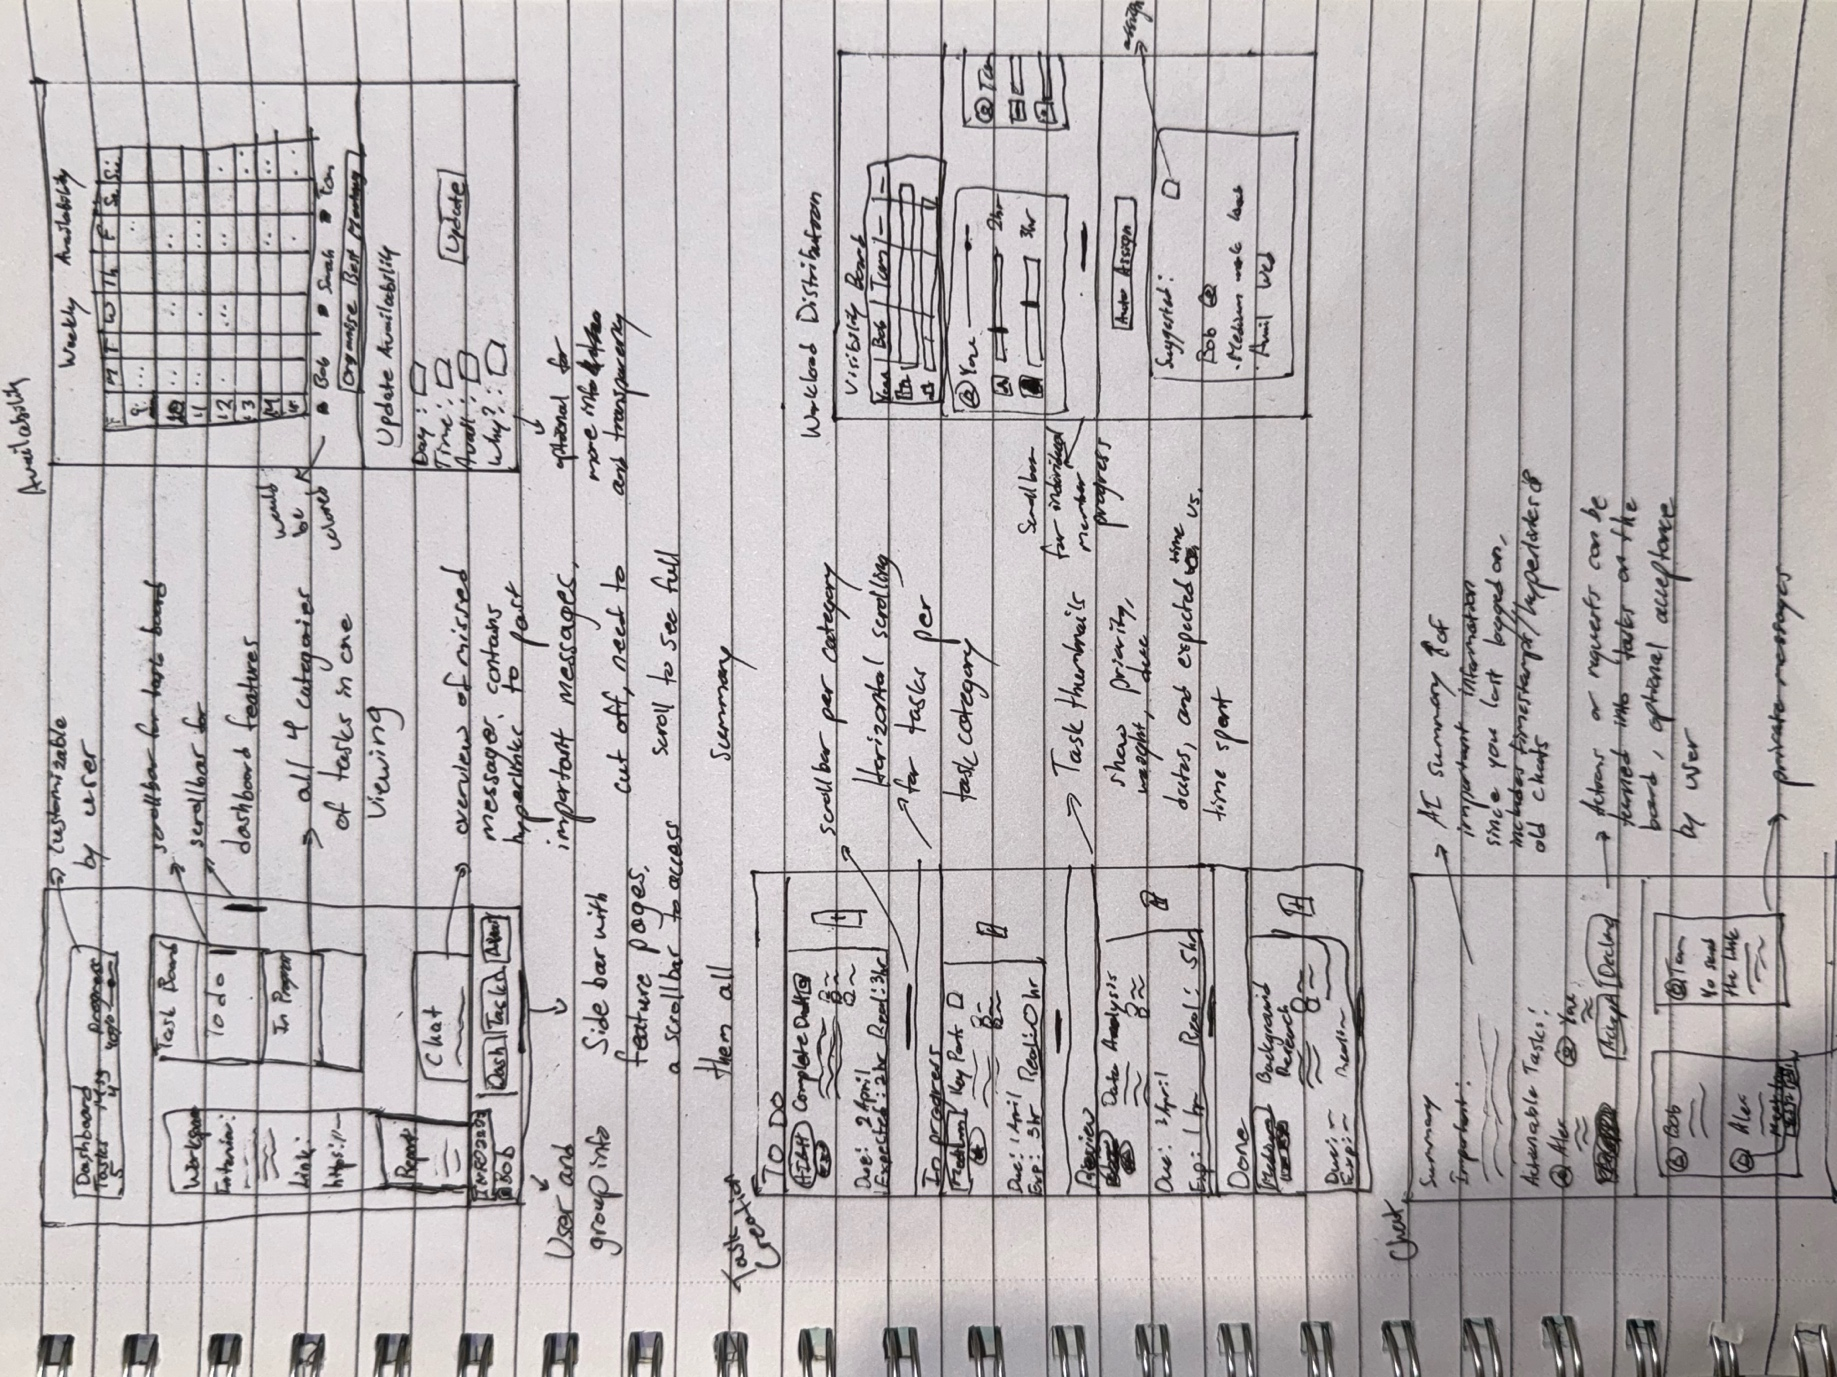 Dashboard
Tasks
5
4
Progress
→ customizable
by user
Workspace
Link:
https://–
Report
Task Board
To do
In Progress
Chat
scrollbar for task board
scrollbar for
dashboard features
→ all 4 categories
of tasks in one
viewing
→ overview of missed
messages, contains
hyperlinks to past
important messages,
cut off, need to
scroll to see full
summary
Bob
Dash
Task
User and
group info
Side bar with
feature pages,
a scrollbar to access
them all
Availability
Weekly Availability
M T W Th F Sa Su
9
10
11
12
Bob
Sarah
Tom
Organise Best Meeting
would
be
colored
Update Availability
Day:
Time:
Avail:
Why?:
Update
optional for
more info
and transparency
Task
Creation
TO DO
High
Complete Draft
Due: 2 April
Expected: 2hr Real: 3hr
In progress
Medium
Key Parts
Due: 1 April
Exp: 3hr Real: 0hr
Review
Data Analysis
Due: 2 April
Exp: 1hr Real: 5hr
Done
Medium
Background
Research
Due: –
Exp: –
Real: –
scrollbar per category
Horizontal scrolling
for tasks per
task category
→ Task thumbnails
show priority,
weight, due
dates, and expected time vs.
time spent
Workload Distribution
Visibility Board
You
Bob
Tom
You
2hr
3hr
Tom
Scrollbar
for individual
member
progress
Auto Assign
Suggested:
Bob
· Medium work load
· Avail Wed
assign
Chat
Summary
Important:
Actionable Tasks:
Alex
You:
Accept
Decline
Bob
Alex
Tom
Yo send
the link
→ AI summary of
important information
since you last logged on,
includes timestamps/hyperlinks of
old chats
→ Actions or requests can be
turned into tasks on the
board, optional acceptance
by user
→ private messages